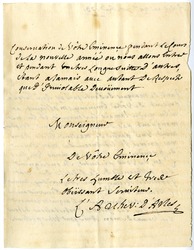 Conservation de Vôtre Eminence pendant le Cours
de la nouvelle année où nous allons Entrer
et pendant une très Longue Suitte d'autres,
étant a Jamais avec autant de Respect
que d'Inviolable Devouement
Monseigneur
De Vôtre Eminence
Le très humble et très
Obéissant Serviteur
L' d'Arles